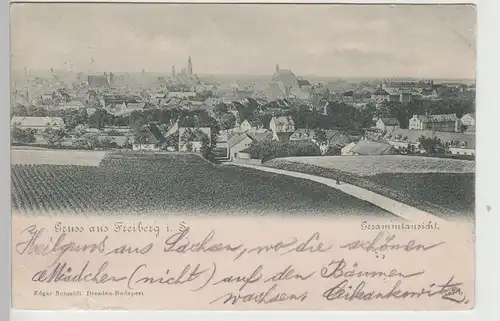 Gruss aus Freiberg i. S.
Gesammtansicht.
aus Sachsen, wo die schönen
Mädchen (nicht) auf den Bäumen
wachsen,
Edgar Schmidt Dresden-Budapest